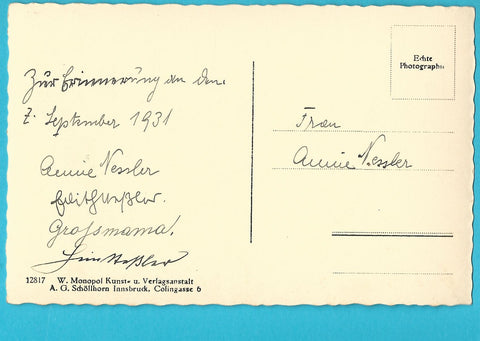 Zur Erinnerung an den
7. September 1931
Annie Nessler
Edith Neßler.
Grossmama.
Neßler
12817 W. Monopol Kunst- u. Verlagsanstalt
A. G. Schöllhorn Innsbruck, Colingasse 6
Echte
Photographie
Frau
Annie Nessler